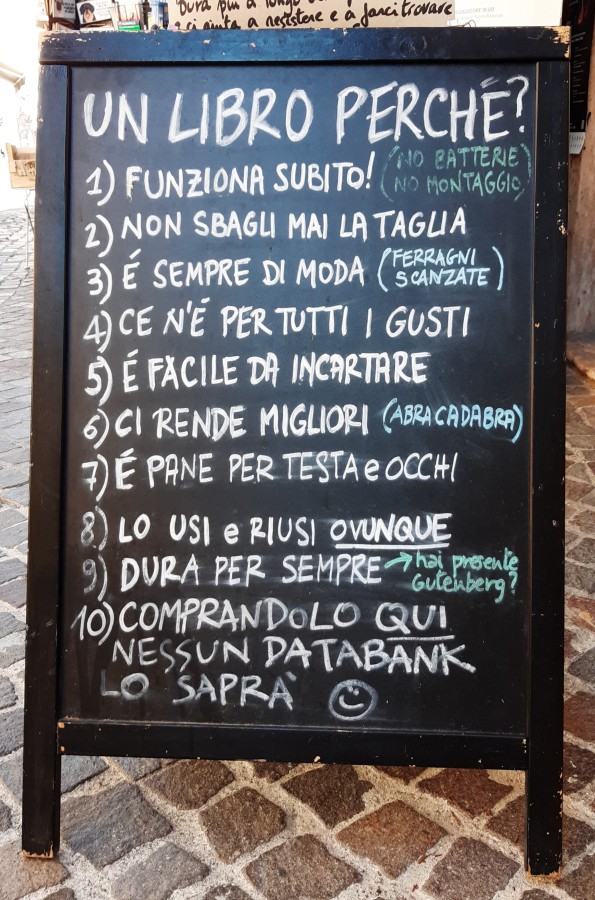 e ci aiuta a resistere e a farci trovare
UN LIBRO PERCHÉ?
1) FUNZIONA SUBITO! (NO BATTERIE
NO MONTAGGIO)
2) NON SBAGLI MAI LA TAGLIA
3) É SEMPRE DI MODA (FERRAGNI
SCANZATE)
4) CE N'É PER TUTTI I GUSTI
5) É FACILE DA INCARTARE
6) CI RENDE MIGLIORI (ABRACADABRA)
7) É PANE PER TESTA e OCCHI
8) LO USI e RIUSI OVUNQUE
9) DURA PER SEMPRE → hai presente
Gutenberg?
10) COMPRANDOLO QUI
NESSUN DATABANK
LO SAPRA'